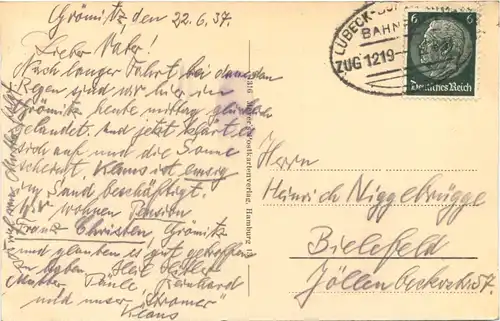 Grömitz den 22.6.37.
Lieber Vater!
Nach langer Fahrt, bei dauerndem
Regen sind wir hier in
Grömitz heute mittag glücklich
gelandet. Und jetzt klärt es
sich auf und die Sonne
scheint. Klaus ist emsig
im Sand beschäftigt.
Wir wohnen Pension
Franz Christen, Grömitz
und glauben es gut getroffen
zu haben. Heil Hitler
Mutter, Reinhard
und unser "Stromer"
Klaus
Postkartenverlag, Hamburg
LÜBECK
BAHNP
ZUG 1219
6 6
Deutsches Reich
Herrn
Heinrich Niggebrügge
Bielefeld
Jöllenbeckerstr. 57.